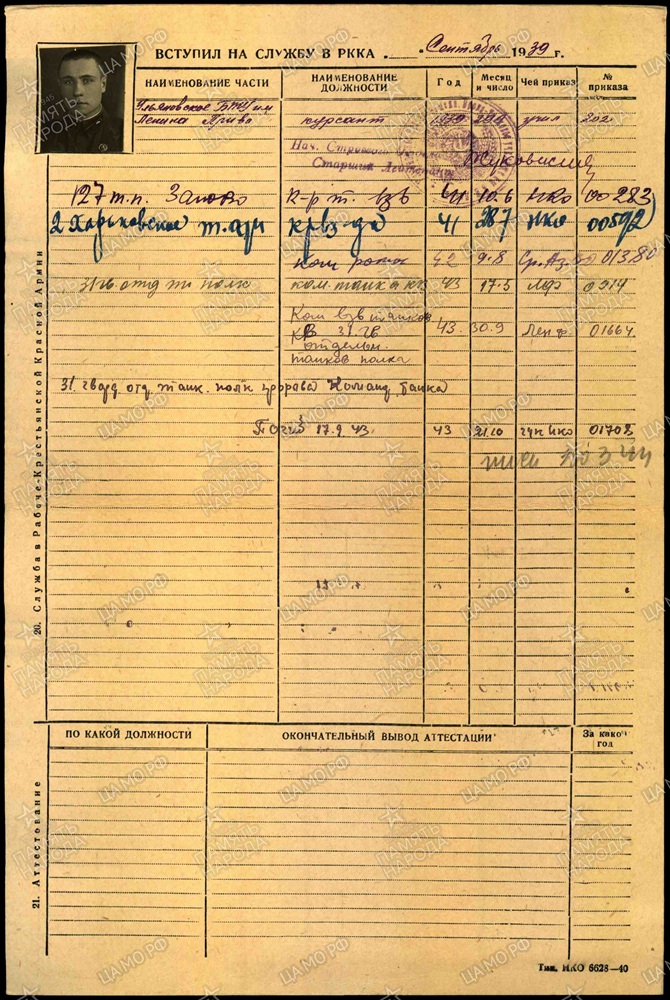 ВСТУПИЛ НА СЛУЖБУ В РККА Сентябрь 1939 г.
НАИМЕНОВАНИЕ ЧАСТИ НАИМЕНОВАНИЕ ДОЛЖНОСТИ Год Месяц и число Чей приказ № приказа
Ульяновское БТУ им
Ленина Приво курсант 1939 учил 202
Нач. Строевого
Старший Лейтенант
127 т.п. Запово к-р т. взв 41 10.6 НКО 00283
2 Харьковское т. 41 28.7 НКО 00592
ком роты 42 9.8 Ср.Аз. 01380
31 гв. отд тп полк ком. танка КВ 43 17.5 ЛФ 0914
Ком взв танков
КВ 31 гв 43. 30.9 Лен ф. 01664.
отдельн.
танков полка
31. гвард. отд. танк. полк прорыва Команд. танка
Погиб 17.9.43 43 21.10 ГУК НКО 01708
20. Служба в Рабоче-Крестьянской Красной Армии
ПО КАКОЙ ДОЛЖНОСТИ ОКОНЧАТЕЛЬНЫЙ ВЫВОД АТТЕСТАЦИИ За какой год
21. Аттестование
Тип. НКО 6628—40
ПАМЯТЬ НАРОДА
ЦАМО.РФ